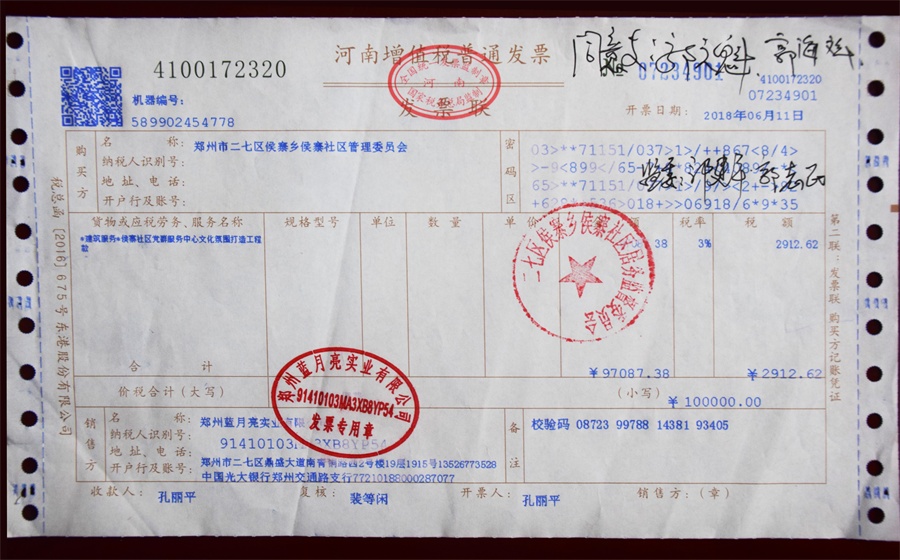 4100172320
河南增值税普通发票
发票联
07234901
4100172320
07234901
机器编号:
589902454778
开票日期: 2018年06月11日
购买方
名 称: 郑州市二七区侯寨乡侯寨社区管理委员会
纳税人识别号:
地 址、电 话:
开户行及账号:
密码区
03>**71151/037>1>/++867<8/4>
货物或应税劳务、服务名称 规格型号 单位 数量 单价 税率 税额
*建筑服务*侯寨社区党群服务中心文化氛围打造工程款
3% 2912.62
合 计 ￥97087.38 ￥2912.62
价税合计(大写) (小写) ￥100000.00
销售方
名 称: 郑州蓝月亮实业有限
纳税人识别号: 91410103MA3XB8YP54
地 址、电 话: 郑州市二七区鼎盛大道南青铜路西2号楼19层1915号13526773528
开户行及账号: 中国光大银行郑州交通路支行77210188000287077
备注
校验码 08723 99788 14381 93405
收款人: 孔丽平 复核: 裴等闲 开票人: 孔丽平 销售方:(章)
税总函[2016]675号东港股份有限公司
第二联:发票联 购买方记账凭证
二七区侯寨乡侯寨社区居务监督委员会
郑州蓝月亮实业有限公司
91410103MA3XB8YP54
发票专用章